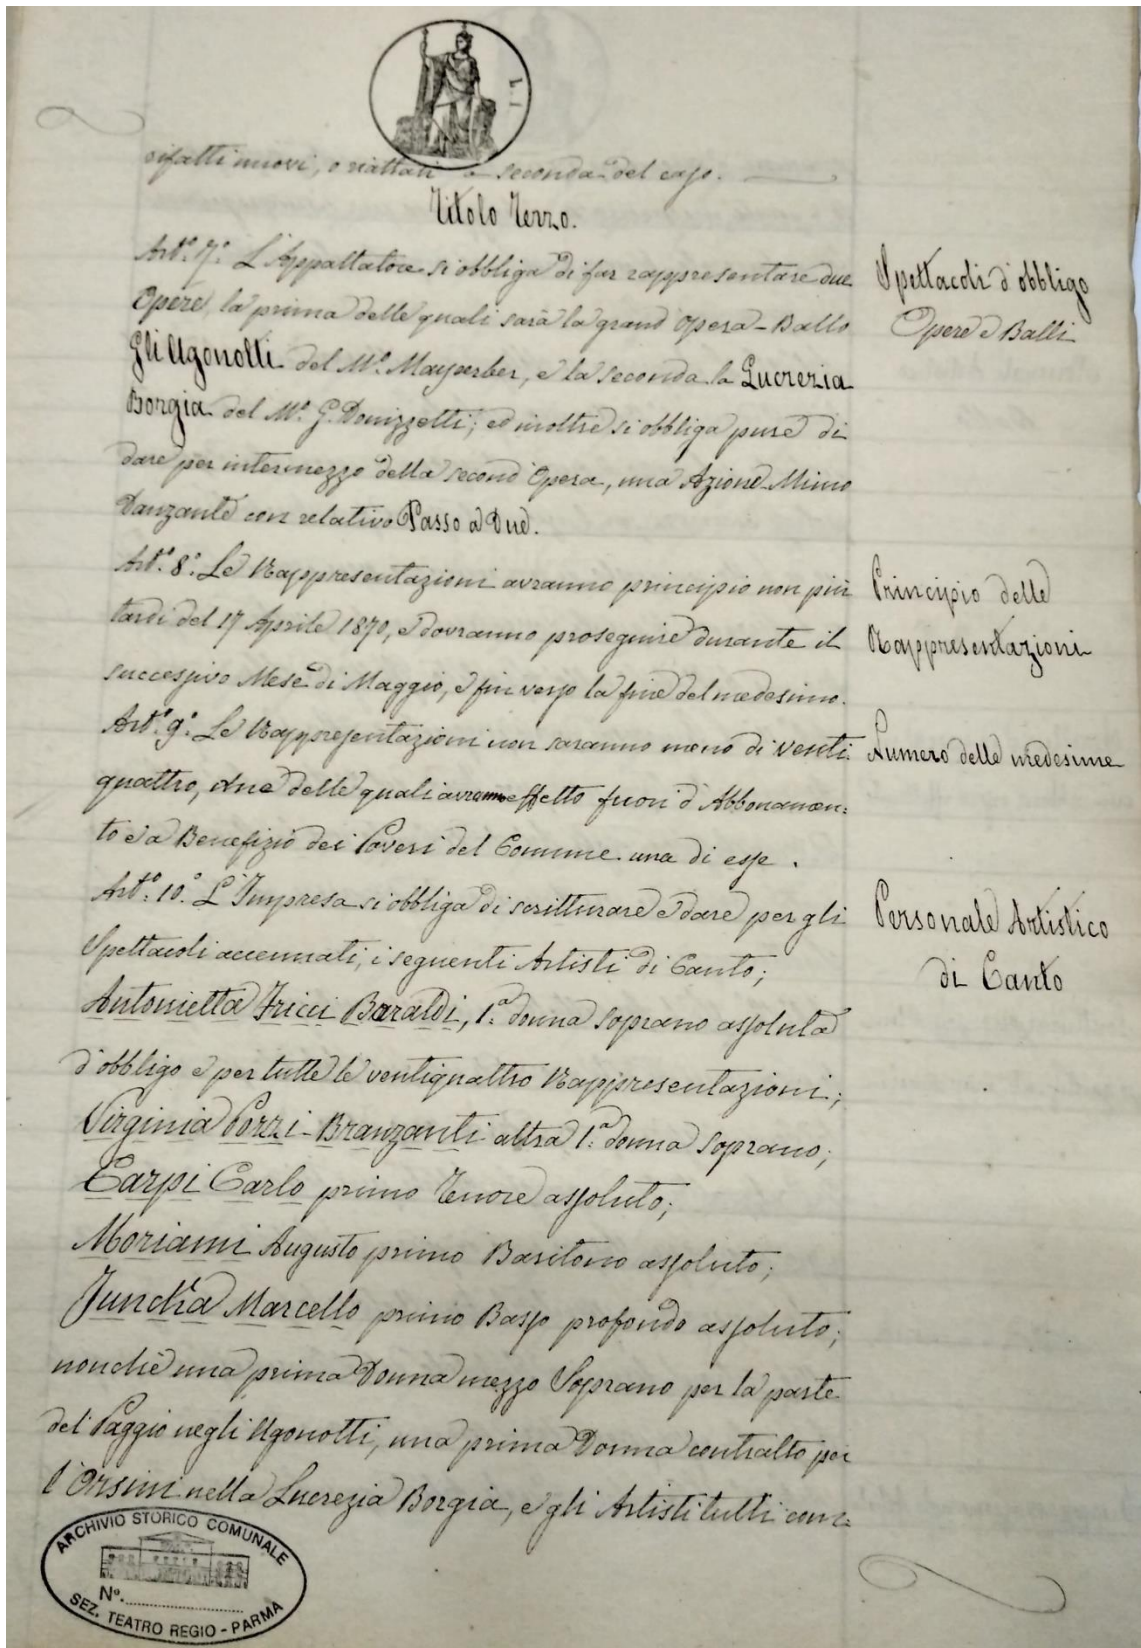 rifatti nuovi, o riattati a seconda del caso.
Titolo Terzo.
Art.º 7.º L'Appaltatore si obbliga di far rappresentare due
Opere, la prima delle quali sarà la grand'opera-Ballo
Gli Ugonotti del M.º Mayerber, e la seconda la Lucrezia
Borgia del M.º G. Donizzetti; ed inoltre si obbliga pure di
dare per intermezzo della second'Opera, una Azione Mimo
Danzante con relativo Passo a Due.
Spettacoli d'obbligo
Opere e Balli
Art.º 8.º Le Rappresentazioni avranno principio non più
tardi del 17 Aprile 1870, e dovranno proseguire durante il
successivo Mese di Maggio, e fin verso la fine del medesimo.
Principio delle
Rappresentazioni
Art.º 9.º Le Rappresentazioni non saranno meno di venti
quattro, due delle quali avranno effetto fuori d'Abbonamen:
to e a Benefizio dei Poveri del Comune una di esse.
Numero delle medesime
Art.º 10.º L'Impresa si obbliga di scritturare e dare per gli
Spettacoli accennati, i seguenti Artisti di Canto;
Antonietta Fricci Baraldi, 1.ª donna soprano assoluta
d'obbligo e per tutte le ventiquattro Rappresentazioni;
Virginia Pozzi-Branzanti altra 1.ª donna soprano;
Carpi Carlo primo Tenore assoluto;
Moriami Augusto primo Baritono assoluto;
Junchà Marcello primo Basso profondo assoluto;
nonchè una prima Donna mezzo Soprano per la parte
del Paggio negli Ugonotti, una prima Donna contralto per
l'Orsini nella Lucrezia Borgia, e gli Artisti tutti com:
Personale Artistico
di Canto
ARCHIVIO STORICO COMUNALE
Nº.
SEZ. TEATRO REGIO - PARMA